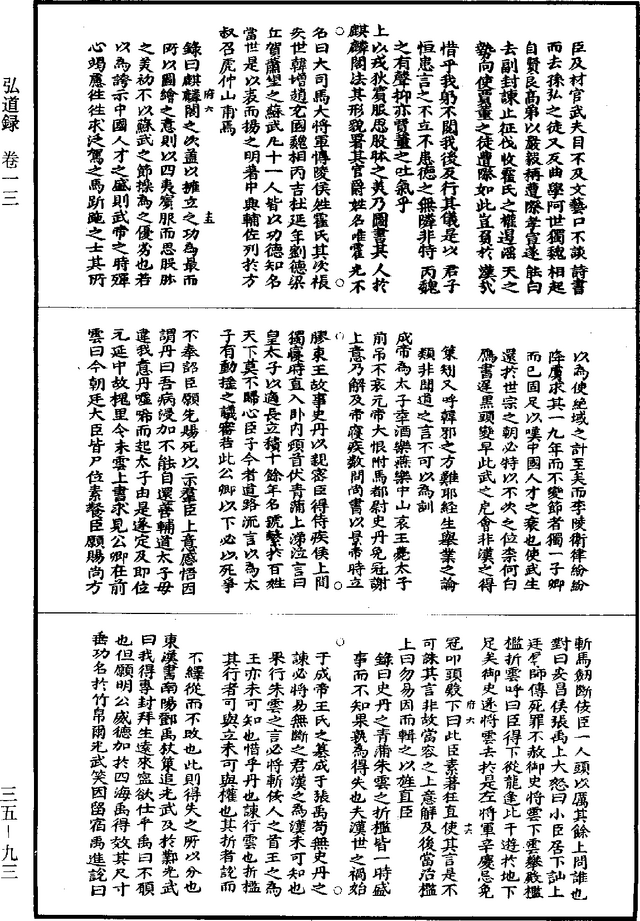 弘道録 卷一三
三五－九三
臣及材官武夫目不及文藝口不談詩書
而去孫弘之徒又反曲學阿世獨魏相起
自賢良高第以嚴毅稱遭際孝宣遂能白
去副封諫止征伐收霍氏之權遏滔天之
勢向使賈董之徒遭際如此豈負於漢哉
惜乎我躬不閱我後及行其儀是以君子
恒患言之不立不患德之無隣非特丙魏
之有聲抑亦賈董之吐氣乎
上以戎狄賓服思股肱之美乃圖畫其人於
麒麟閣法其形貌署其官爵姓名唯霍光不
名曰大司馬大將軍博陵侯姓霍氏其次張
安世韓增趙充國魏相丙吉杜延年劉德梁
丘賀蕭望之蘇武凡十一人皆以功德知名
當世是以表而揚之明著中興輔佐列於方
叔召虎仲山甫焉
錄曰麒麟閣之次蓋以擁立之功為最而
所以圖繪之意則以四夷賓服而思股肱
之美初不以蘇武之節操為之優劣也若
以為誇示中國人才之盛則武帝之時殫
心竭慮往往求泛駕之馬跅弛之士其所
以為使絕域之計至矣而李陵衛律紛紛
降虜求其一九年而不變節者獨一子卿
而已固足以嘆中國人才之衰也使武生
還於世宗之朝必特以不次之位李何白
鴈書遲黑頭變早此武之戹會非漢之得
策矧又呼韓邪之方難耶經生舉業之論
類非聞道之言不可以為訓
成帝為太子幸酒樂燕樂中山哀王薨太子
前吊不哀元帝大恨附馬都尉史丹免冠謝
上意乃解及帝寢疾數問尚書以景帝時立
膠東王故事史丹以親密臣得侍疾侯上間
獨寢時直入卧內頓首伏青蒲上涕泣言曰
皇太子以適長立積十餘年名號繫於百姓
天下莫不歸心臣子今者道路流言以為太
子有動搖之議審若此公卿以下必以死爭
不奉詔臣願先賜死以示羣臣上意感悟因
謂丹曰吾病浸加不能自還善輔道太子毋
違我意丹噓唏而起太子由是遂定及即位
元延中故槐里令朱雲上書求見公卿在前
雲曰今朝廷大臣皆尸位素餐臣願賜尚方
斬馬劒斷佞臣一人頭以厲其餘上問誰也
對曰安昌侯張禹上大怒曰小臣居下訕上
廷辱師傅死罪不赦御史將雲下雲舉殿檻
檻折雲呼曰臣得下從龍逢比干遊於地下
足矣御史遂將雲去於是左將軍辛慶忌免
冠叩頭殿下曰此臣素著狂直使其言是不
可誅其言非故當容之上意解及後當治檻
上曰勿易因而輯之以旌直臣
錄曰史丹之青蒲朱雲之折檻皆一時盛
事而不知果孰為得失也夫漢世之禍始
于成帝王氏之篡成于張禹苟無史丹之
諫必將易無斷之君漢之為漢未可知也
果行朱雲之言必將斬佞人之首王之為
王亦未可知也惜乎丹也諫行雲也折檻
其行者可與立未可與權也其折者說而
不繹從而不改也此則得失之所以分也
東漢書南陽鄧禹杖策追光武及於鄴光武
曰我得專封拜生遠來寧欲仕乎禹曰不願
也但願明公威德加於四海禹得效其尺寸
垂功名於竹帛爾光武笑因留宿禹進說曰